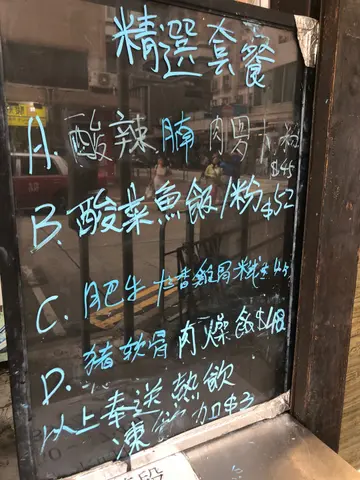 精選套餐
A. 酸辣腩肉骨 粉 $45
B. 酸菜魚飯/粉 $52
C. 肥牛 雞腎 45
D. 豬軟骨肉燥飯 $48
以上奉送熱飲
凍飲加$3